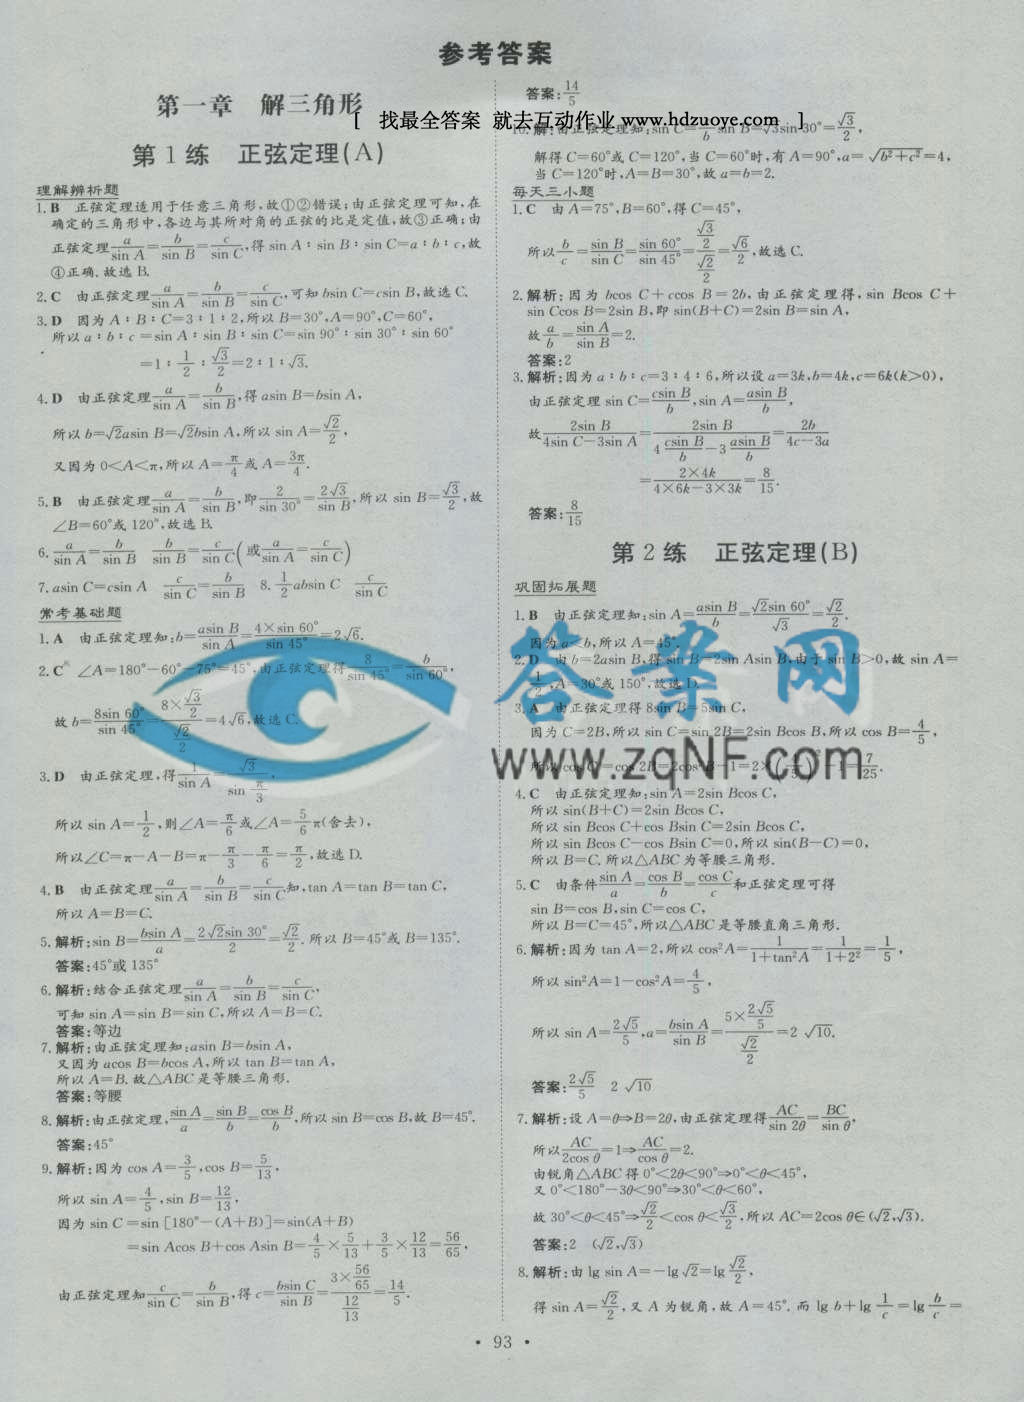 参考答案
[ 找最全答案 就去互动作业 www.hdzuoye.com ]
第一章 解三角形
第1练 正弦定理(A)
理解辨析题
1. B 正弦定理适用于任意三角形,故①②错误;由正弦定理可知,在
确定的三角形中,各边与其所对角的正弦的比是定值,故③正确;由
正弦定理a/sin A=b/sin B=c/sin C,得sin A∶sin B∶sin C=a∶b∶c,故
④正确.故选B.
2. C 由正弦定理a/sin A=b/sin B=c/sin C,可知bsin C=csin B,故选C.
3. D 因为A∶B∶C=3∶1∶2,所以B=30°,A=90°,C=60°,
所以a∶b∶c=sin A∶sin B∶sin C=sin 90°∶sin 30°∶sin 60°
=1∶1/2∶√3/2=2∶1∶√3.
4. D 由正弦定理a/sin A=b/sin B,得asin B=bsin A,
所以b=√2asin B=√2bsin A,所以sin A=√2/2,
又因为0<A<π,所以A=π/4或A=3π/4.
5. B 由正弦定理a/sin A=b/sin B,即2/sin 30°=2√3/sin B,所以sin B=√3/2,故
∠B=60°或120°,故选B.
6. a/sin A=b/sin B b/sin B=c/sin C(或a/sin A=c/sin C)
7. asin C=csin A c/sin C=b/sin B 8. 1/2absin C c/sin C
常考基础题
1. A 由正弦定理知:b=asin B/sin A=4×sin 60°/sin 45°=2√6.
2. C ∠A=180°-60°-75°=45°,由正弦定理得8/sin 45°=b/sin 60°,
故b=8sin 60°/sin 45°=(8×√3/2)/(√2/2)=4√6,故选C.
3. D 由正弦定理,得1/sin A=√3/sin π/3,
所以sin A=1/2,则∠A=π/6或∠A=5/6π(舍去),
所以∠C=π-A-B=π-π/3-π/6=π/2,故选D.
4. B 由正弦定理a/sin A=b/sin B=c/sin C知,tan A=tan B=tan C,
所以A=B=C.
5. 解析:sin B=bsin A/a=2√2sin 30°/2=√2/2.所以B=45°或B=135°.
答案:45°或135°
6. 解析:结合正弦定理a/sin A=b/sin B=c/sin C,
可知sin A=sin B=sin C,所以A=B=C.
答案:等边
7. 解析:由正弦定理知:asin B=bsin A,
又因为acos B=bcos A,所以tan B=tan A,
所以A=B.故△ABC是等腰三角形.
答案:等腰
8. 解析:由正弦定理,sin A/a=sin B/b=cos B/b,所以sin B=cos B,故B=45°.
答案:45°
9. 解析:因为cos A=3/5,cos B=5/13,
所以sin A=4/5,sin B=12/13,
因为sin C=sin [180°-(A+B)]=sin(A+B)
=sin Acos B+cos Asin B=4/5×5/13+3/5×12/13=56/65,
由正弦定理知c/sin C=b/sin B,得c=bsin C/sin B=(3×56/65)/(12/13)=14/5.
答案:14/5
10. 解:由正弦定理知:sin C=c/b sin B=√3sin 30°=√3/2,
解得C=60°或C=120°,当C=60°时,有A=90°,a=√b²+c²=4,
当C=120°时,A=B=30°,故a=b=2.
每天三小题
1. C 由A=75°,B=60°,得C=45°,
所以b/c=sin B/sin C=sin 60°/sin 45°=(√3/2)/(√2/2)=√6/2,故选C.
2. 解析:因为bcos C+ccos B=2b,由正弦定理得,sin Bcos C+
sin Ccos B=2sin B,即sin(B+C)=2sin B=sin A,
故a/b=sin A/sin B=2.
答案:2
3. 解析:因为a∶b∶c=3∶4∶6,所以设a=3k,b=4k,c=6k(k>0),
由正弦定理sin C=csin B/b,sin A=asin B/b,
故2sin B/(4sin C-3sin A)=2sin B/(4 csin B/b-3 asin B/b)=2b/(4c-3a)
=2×4k/(4×6k-3×3k)=8/15.
答案:8/15
第2练 正弦定理(B)
巩固拓展题
1. B 由正弦定理知:sin A=asin B/b=√2sin 60°/√3=√2/2.
因为a<b,所以A=45°.
2. D 由b=2asin B,得sin B=2sin Asin B,由于sin B>0,故sin A=
1/2,A=30°或150°,故选D.
3. A 由正弦定理得8sin B=5sin C,
因为C=2B,所以sin C=sin 2B=2sin Bcos B,所以cos B=4/5,
所以cos C=cos 2B=2cos²B-1=2×(4/5)²-1=7/25.
4. C 由正弦定理知:sin A=2sin Bcos C,
所以sin(B+C)=2sin Bcos C,
所以sin Bcos C+cos Bsin C=2sin Bcos C,
所以sin Bcos C-cos Bsin C=0,所以sin(B-C)=0,
所以B=C.所以△ABC为等腰三角形.
5. C 由条件sin A/a=cos B/b=cos C/c和正弦定理可得
sin B=cos B,sin C=cos C,
所以B=C=45°,所以△ABC是等腰直角三角形.
6. 解析:因为tan A=2,所以cos²A=1/(1+tan²A)=1/(1+2²)=1/5,
所以sin²A=1-cos²A=4/5,
所以sin A=2√5/5,a=bsin A/sin B=(5×2√5/5)/(√2/2)=2 √10.
答案:2√5/5 2 √10
7. 解析:设A=θ⇒B=2θ,由正弦定理得AC/sin 2θ=BC/sin θ,
所以AC/2cos θ=1⇒AC/cos θ=2.
由锐角△ABC得0°<2θ<90°⇒0°<θ<45°,
又0°<180°-3θ<90°⇒30°<θ<60°,
故30°<θ<45°⇒√2/2<cos θ<√3/2,所以AC=2cos θ∈(√2,√3).
答案:2 (√2,√3)
8. 解析:由lg sin A=-lg √2=lg √2/2,
得sin A=√2/2,又A为锐角,故A=45°.而lg b+lg 1/c=lg b/c=
答案网
www.zqNF.com
• 93 •